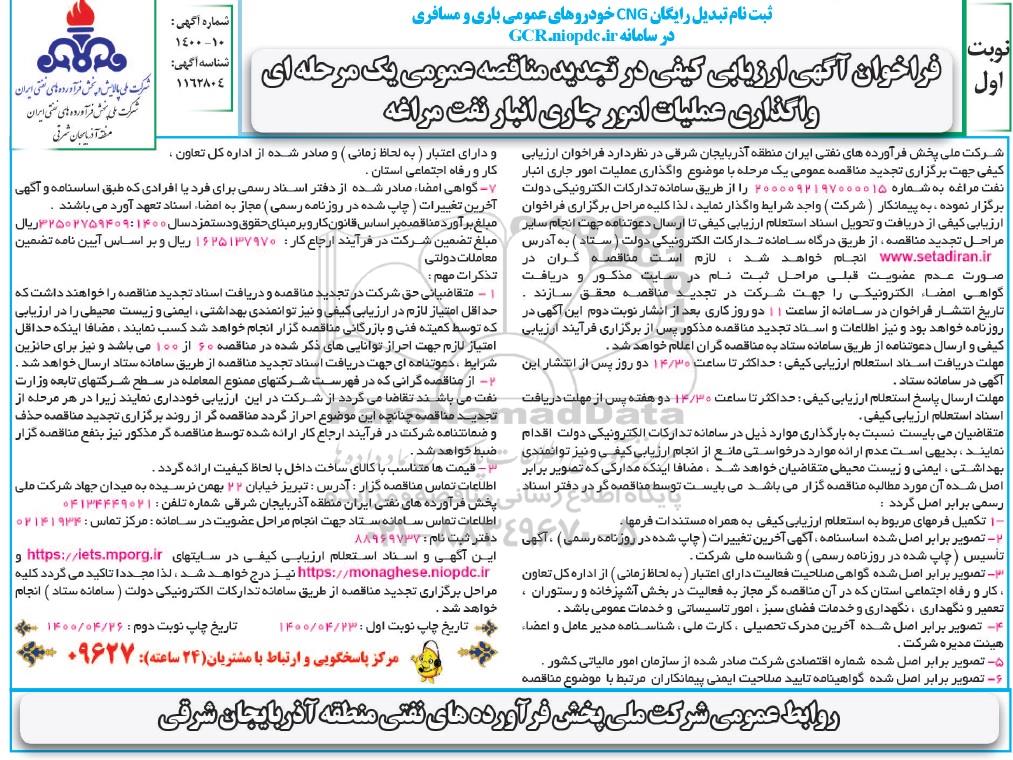 ثبت نام تبدیل رایگان CNG خودروهای عمومی باری و مسافری
در سامانه GCR.niopdc.ir
نوبت
اول
فراخوان آگهی ارزیابی کیفی در تجدید مناقصه عمومی یک مرحله ای
واگذاری عملیات امور جاری انبار نفت مراغه
شماره آگهی:
۱۴۰۰-۱۰
شناسه آگهی:
۱۱۶۲۸۰۴
شرکت ملی پالایش و پخش فرآورده های نفتی ایران
شرکت ملی پخش فرآورده های نفتی ایران
منطقه آذربایجان شرقی
شرکت ملی پخش فرآورده های نفتی ایران منطقه آذربایجان شرقی در نظردارد فراخوان ارزیابی
کیفی جهت برگزاری تجدید مناقصه عمومی یک مرحله با موضوع واگذاری عملیات امور جاری انبار
نفت مراغه به شماره ۲۰۰۰۰۹۲۱۹۷۰۰۰۰۱۵ را از طریق سامانه تدارکات الکترونیکی دولت
برگزار نموده ، به پیمانکار ( شرکت ) واجد شرایط واگذار نماید ، لذا کلیه مراحل برگزاری فراخوان
ارزیابی کیفی از دریافت و تحویل اسناد استعلام ارزیابی کیفی تا ارسال دعوتنامه جهت انجام سایر
مراحل تجدید مناقصه ، از طریق درگاه سامانه تدارکات الکترونیکی دولت ( ستاد ) به آدرس
www.setadiran.ir انجام خواهد شد ، لازم است مناقصه گران در
صورت عدم عضویت قبلی مراحل ثبت نام در سایت مذکور و دریافت
گواهی امضاء الکترونیکی را جهت شرکت در تجدید مناقصه محقق سازند .
تاریخ انتشار فراخوان در سامانه از ساعت ۱۱ دو روز کاری بعد از انشار نوبت دوم این آگهی در
روزنامه خواهد بود و نیز اطلاعات و اسناد تجدید مناقصه مذکور پس از برگزاری فرآیند ارزیابی
کیفی و ارسال دعوتنامه از طریق سامانه ستاد به مناقصه گران اعلام خواهد شد .
مهلت دریافت اسناد استعلام ارزیابی کیفی : حداکثر تا ساعت ۱۴/۳۰ دو روز پس از انتشار این
آگهی در سامانه ستاد .
مهلت ارسال پاسخ استعلام ارزیابی کیفی : حداکثر تا ساعت ۱۴/۳۰ دو هفته پس از مهلت دریافت
اسناد استعلام ارزیابی کیفی .
متقاضیان می بایست نسبت به بارگذاری موارد ذیل در سامانه تدارکات الکترونیکی دولت اقدام
نمایند ، بدیهی است عدم ارائه موارد درخواستی مانع از انجام ارزیابی کیفی و نیز توانمندی
بهداشتی ، ایمنی و زیست محیطی متقاضیان خواهد شد ، مضافا اینکه مدارکی که تصویر برابر
اصل شده آن مورد مطالبه مناقصه گزار می باشد می بایست توسط مناقصه گر در دفتر اسناد
رسمی برابر اصل گردد :
۱- تکمیل فرمهای مربوط به استعلام ارزیابی کیفی به همراه مستندات فرمها.
۲- تصویر برابر اصل شده اساسنامه ، آگهی آخرین تغییرات ( چاپ شده در روزنامه رسمی ) ، آگهی
تأسیس ( چاپ شده در روزنامه رسمی ) و شناسه ملی شرکت .
۳- تصویر برابر اصل شده گواهی صلاحیت فعالیت دارای اعتبار ( به لحاظ زمانی ) از اداره کل تعاون
، کار و رفاه اجتماعی استان که در آن مناقصه گر مجاز به فعالیت در بخش آشپزخانه و رستوران ،
تعمیر و نگهداری ، نگهداری و خدمات فضای سبز ، امور تاسیساتی و خدمات عمومی باشد .
۴- تصویر برابر اصل شده آخرین مدرک تحصیلی ، کارت ملی ، شناسنامه مدیر عامل و اعضاء
هیئت مدیره شرکت .
۵- تصویر برابر اصل شده شماره اقتصادی شرکت صادر شده از سازمان امور مالیاتی کشور .
۶- تصویر برابر اصل شده گواهینامه تایید صلاحیت ایمنی پیمانکاران مرتبط با موضوع مناقصه
و دارای اعتبار ( به لحاظ زمانی ) و صادر شده از اداره کل تعاون ،
کار و رفاه اجتماعی استان .
۷- گواهی امضاء صادر شده از دفتر اسناد رسمی برای فرد یا افرادی که طبق اساسنامه و آگهی
آخرین تغییرات ( چاپ شده در روزنامه رسمی ) مجاز به امضاء اسناد تعهد آور می باشند .
مبلغ برآورد مناقصه بر اساس قانون کار و بر مبنای حقوق و دستمزد سال ۱۴۰۰: ۳۲۵۰۲۷۵۹۴۰۹ ریال
مبلغ تضمین شرکت در فرآیند ارجاع کار : ۱۶۲۵۱۳۷۹۷۰ ریال و بر اساس آیین نامه تضمین
معاملات دولتی
تذکرات مهم :
۱ - متقاضیانی حق شرکت در تجدید مناقصه و دریافت اسناد تجدید مناقصه را خواهند داشت که
حداقل امتیاز لازم در ارزیابی کیفی و نیز توانمندی بهداشتی ، ایمنی و زیست محیطی را در ارزیابی
که توسط کمیته فنی و بازرگانی مناقصه گزار انجام خواهد شد کسب نمایند ، مضافا اینکه حداقل
امتیاز لازم جهت احراز توانایی های ذکر شده در مناقصه ۶۰ از ۱۰۰ می باشد و نیز برای حائزین
شرایط ، دعوتنامه ای جهت دریافت اسناد تجدید مناقصه از طریق سامانه ستاد ارسال خواهد شد .
۲- از مناقصه گرانی که در فهرست شرکتهای ممنوع المعامله در سطح شرکتهای تابعه وزارت
نفت می باشند تقاضا می گردد از شرکت در این ارزیابی خودداری نمایند زیرا در هر مرحله از
تجدید مناقصه چنانچه این موضوع احراز گردد مناقصه گر از روند برگزاری تجدید مناقصه حذف
و ضمانتنامه شرکت در فرآیند ارجاع کار ارائه شده توسط مناقصه گر مذکور نیز بنفع مناقصه گزار
ضبط خواهد شد .
۳- قیمت ها متناسب با کالای ساخت داخل با لحاظ کیفیت ارائه گردد .
اطلاعات تماس مناقصه گزار : آدرس : تبریز خیابان ۲۲ بهمن نرسیده به میدان جهاد شرکت ملی
پخش فرآورده های نفتی ایران منطقه آذربایجان شرقی شماره تلفن : ۰۴۱۳۴۴۴۹۰۲۱
اطلاعات تماس سامانه ستاد جهت انجام مراحل عضویت در سامانه : مرکز تماس : ۰۲۱۴۱۹۳۴
دفتر ثبت نام : ۸۸۹۶۹۷۳۷
این آگهی و اسناد استعلام ارزیابی کیفی در سایتهای https://iets.mporg.ir و
https://monaghese.niopdc.ir نیز درج خواهد شد ، لذا مجددا تاکید می گردد کلیه
مراحل برگزاری تجدید مناقصه از طریق سامانه تدارکات الکترونیکی دولت ( سامانه ستاد ) انجام
خواهد شد .
تاریخ چاپ نوبت اول : ۱۴۰۰/۰۴/۲۳ تاریخ چاپ نوبت دوم : ۱۴۰۰/۰۴/۲۶
مرکز پاسخگویی و ارتباط با مشتریان(۲۴ ساعته): ۰۹۶۲۷
روابط عمومی شرکت ملی پخش فرآورده های نفتی منطقه آذربایجان شرقی
پایگاه اطلاع رسانی مناقصه و مزایده